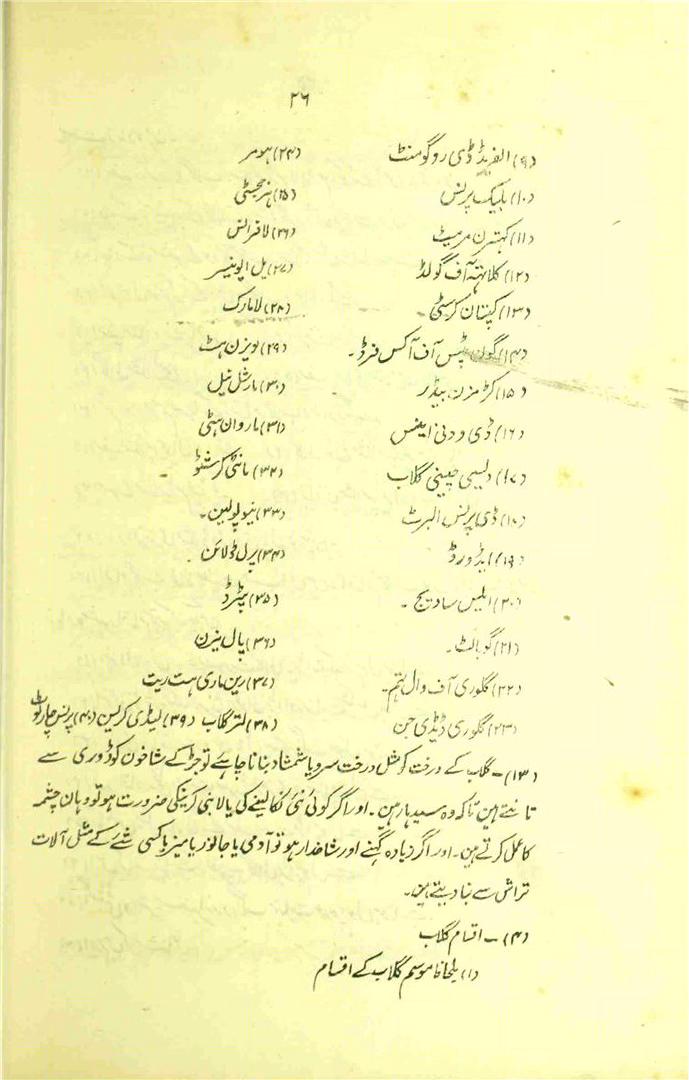 ۲۶
(۹) الفریڈ ڈی روگومنٹ (۲۴) ہومر
(۱۰) بلیک پرنس (۲۵) ہنر مجسٹی
(۱۱) کیتہرن مرمیٹ (۲۶) لافرانس
(۱۲) کلاتہہ آف گولڈ (۲۷) پل اپونیسر
(۱۳) کپتان کرسٹی (۲۸) لامارک
(۱۴) آف آکس فرڈ۔ (۲۹) لویزن ہٹ
(۱۵) کڑمزن بیڈر (۳۰) مارشل نیل
(۱۶) ڈی ودنی اینس (۳۱) ماروان ہٹی
(۱۷) دلیسی چینی گلاب (۳۲) مانٹی کرسٹو
(۱۸) ڈی پرنس البرٹ (۳۳) نیوپولین۔
(۱۹) ایڈورڈ (۳۴) پرل ڈولائن
(۲۰) ایلیس سادیج۔ (۳۵) پٹرڈ
(۲۱) گوبالٹ۔ (۳۶) پال نیرن
(۲۲) گلوری آف وال ہتم۔ (۳۷) رین ماری ہت ریت
(۲۳) گلوری ڈیڈی جن (۳۸) لتر گلاب (۳۹) لیڈی کرلین (۴۰) پرنس چارلوٹ
(۱۳)۔ گلاب کے درخت کو مثل درخت سرو یا شمشاد بنانا چاہئے تو جڑ کے شاخون کو ڈوری سے
تانتے ہین تاکہ وہ سیدہا رہین۔ اور اگر کوئی نئی نکالینے کی یا لابنی کرنیکی ضرورت ہو تو وہان چشمہ
کا عمل کرتے ہین۔ اور اگر زیادہ گہنے اور شاخدار ہو تو آدمی یا جانور یا میز یا کسی شئے کے مثل آلات
تراش سے بنا دیتے ہین۔
(۱۴)۔ اقسام گلاب
(۱) بلحاظ موسم گلاب کے اقسام